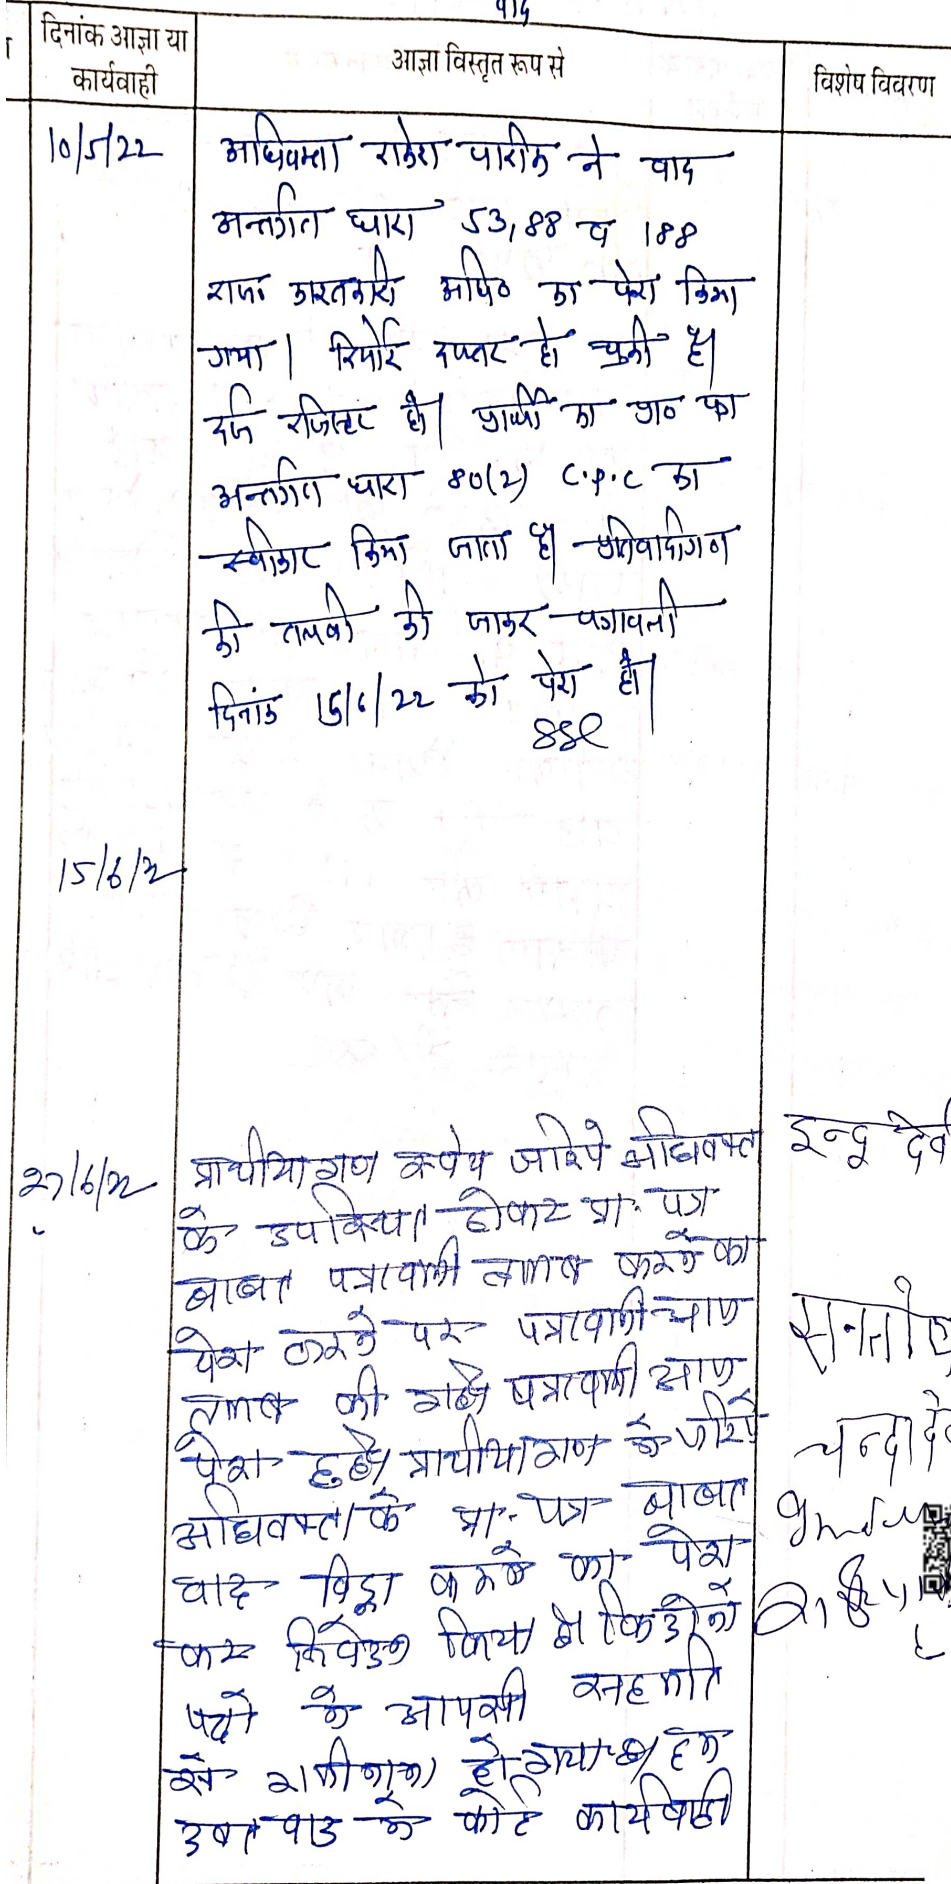 वाद
दिनांक आज्ञा या
कार्यवाही
आज्ञा विस्तृत रूप से
विशेष विवरण
10/5/22
अधिवक्ता राकेश पारीक ने वाद
अन्तर्गत धारा 53,88 व 188
राज० काश्तकारी अधि० का पेश किया
गया। रिपोर्ट दफ्तर हो चुकी है।
दर्ज रजिस्टर हो। प्रार्थी का प्रा० पत्र
अन्तर्गत धारा 80(2) C.P.C का
स्वीकार किया जाता है। प्रतिवादीगण
की तलबी की जाकर पत्रावली
दिनांक 15/6/22 को पेश हो।
15/6/22
27/6/22
प्रार्थीयागण स्वयं जरिये अधिवक्ता
के उपस्थित होकर प्रा. पत्र
बाबत पत्रावली तलब करने का
पेश करने पर पत्रावली आज
तलब की गई। पत्रावली आज
पेश हुई। प्रार्थीयागण के जरिये
अधिवक्ता के प्रा. पत्र बाबत
वाद विड्रा करने का पेश
कर निवेदन किया है कि दोनों
पक्षों के आपसी सहमति
से राजीनामा हो गया है। हम
उक्त वाद में कोई कार्यवाही
इन्दु देव
सन्तोष
चन्दा दे